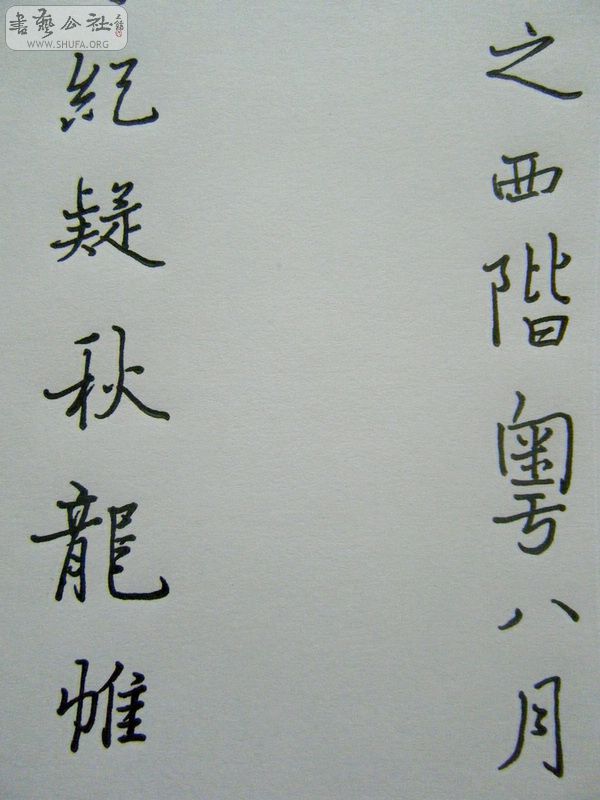 之西階粵八月
紀疑秋龍帷
書藝公社
WWW.SHUFA.ORG